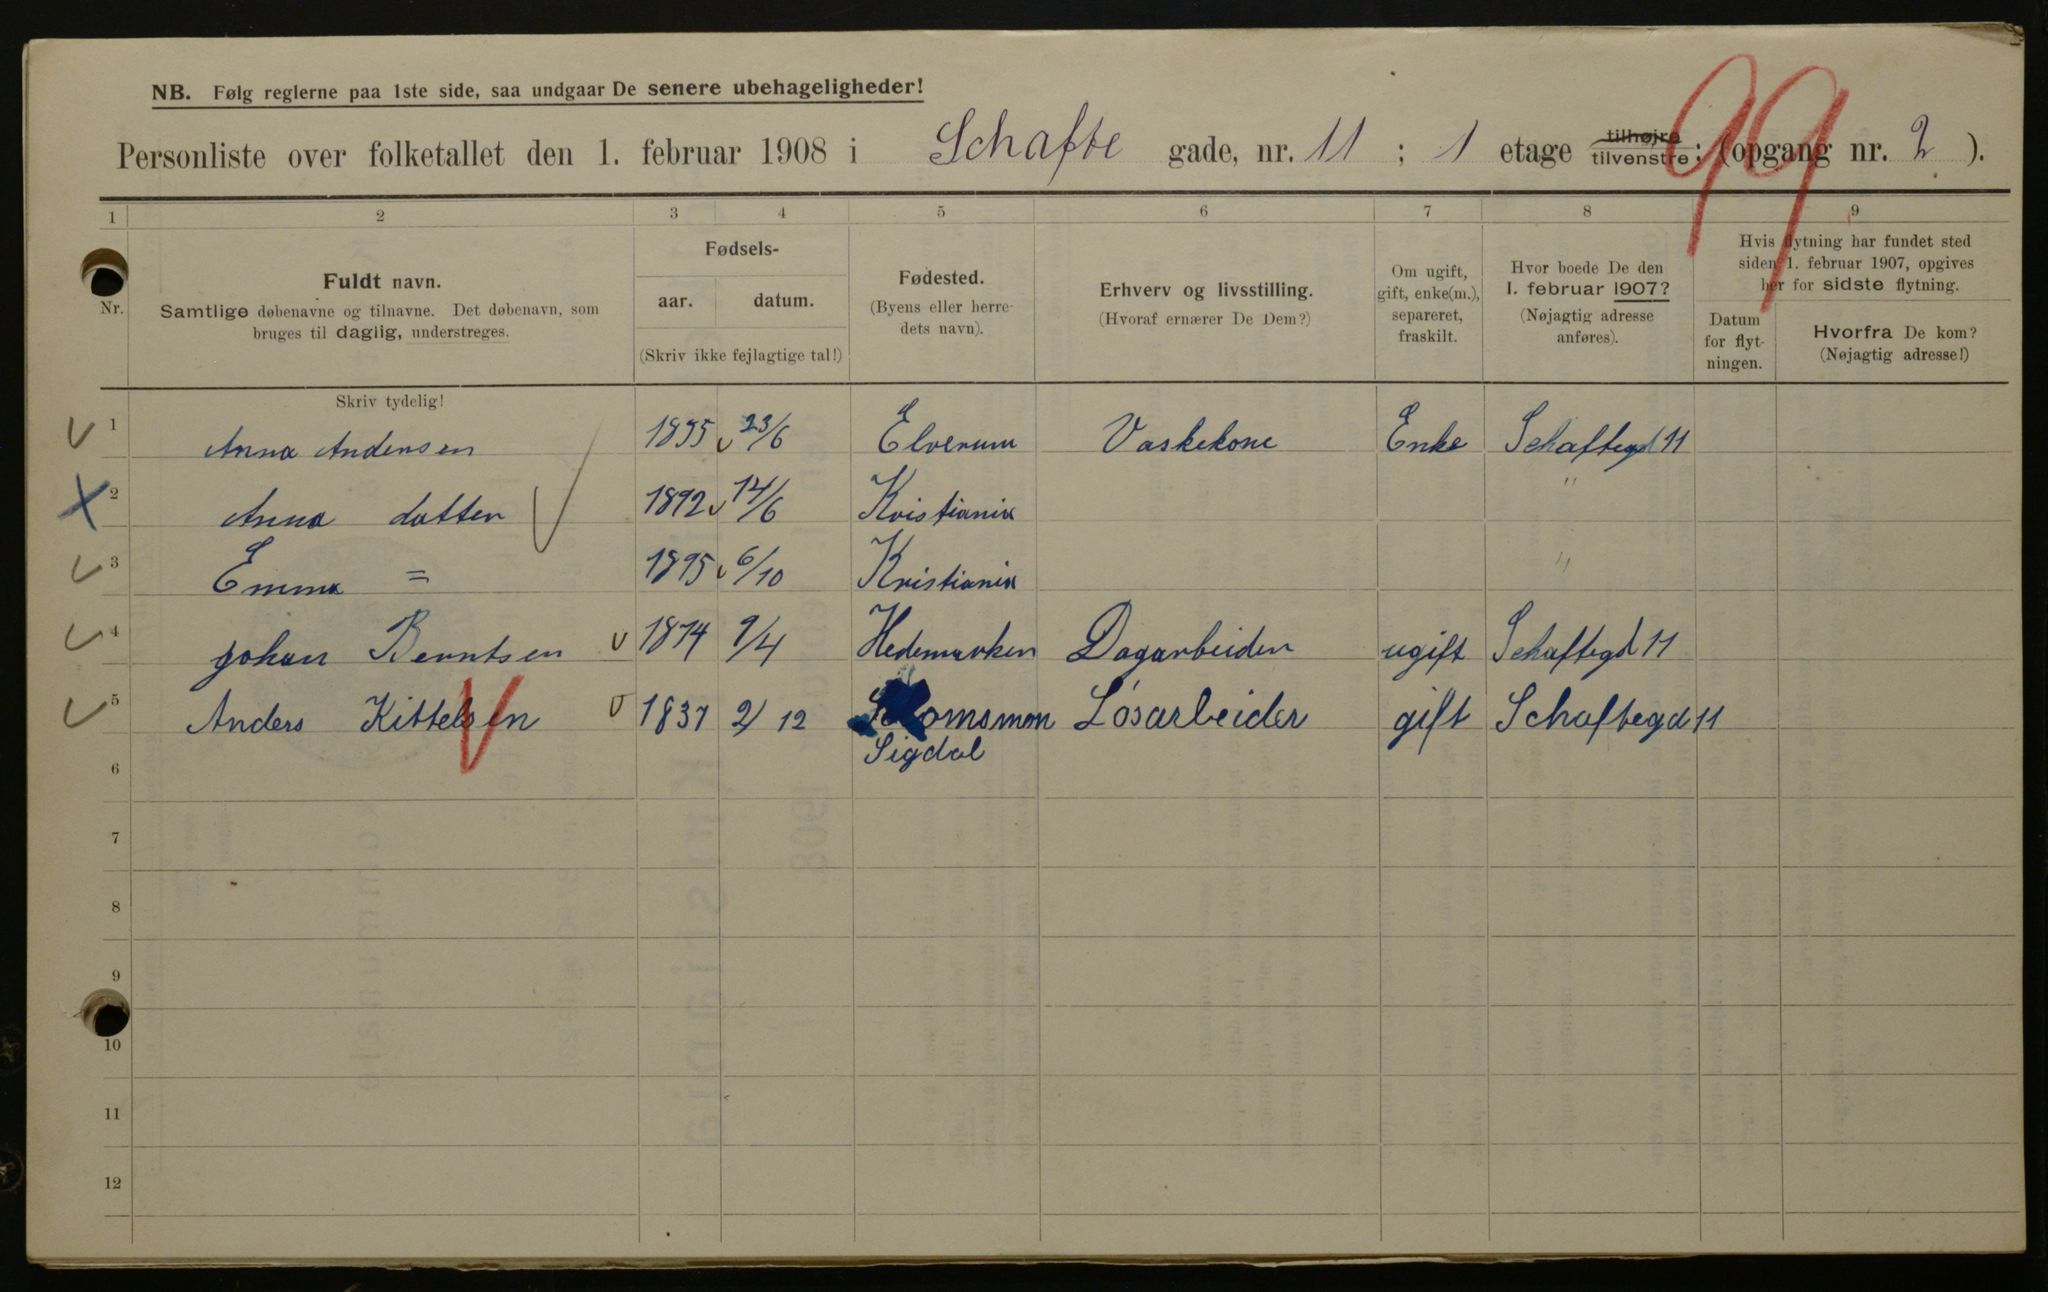 NB. Følg reglerne paa 1ste side, saa undgaar De senere ubehageligheder!
99
Personliste over folketallet den 1. februar 1908 i Schafte gade, nr. 11 ; 1 etage tilhøjre tilvenstre : (opgang nr. 2 ).
1 2 3 4 5 6 7 8 9
Nr.
Fuldt navn.
Samtlige døbenavne og tilnavne. Det døbenavn, som
bruges til daglig, understreges.
Fødsels-
aar. datum.
(Skriv ikke fejlagtige tal!)
Fødested.
(Byens eller herre-
dets navn).
Erhverv og livsstilling.
(Hvoraf ernærer De Dem?)
Om ugift,
gift, enke(m.),
separeret,
fraskilt.
Hvor boede De den
1. februar 1907?
(Nøjagtig adresse
anføres).
Hvis flytning har fundet sted
siden 1. februar 1907, opgives
her for sidste flytning.
Datum
for flyt-
ningen.
Hvorfra De kom?
(Nøjagtig adresse!)
Skriv tydelig!
1 Anna Andersen 23/6 Elverum Vaskekone Enke Schaftegd 11
2 Anna datter 1892 14/6 Kristiania "
3 Emma = 1895 6/10 Kristiania "
4 Johan Berntsen 1874 9/4 Hedemarken Dagarbeider ugift Schaftegd 11
5 Anders Kittelsen 1837 2/12 Løsarbeider gift Schaftegd 11
Sigdal
6
7
8
9
10
11
12